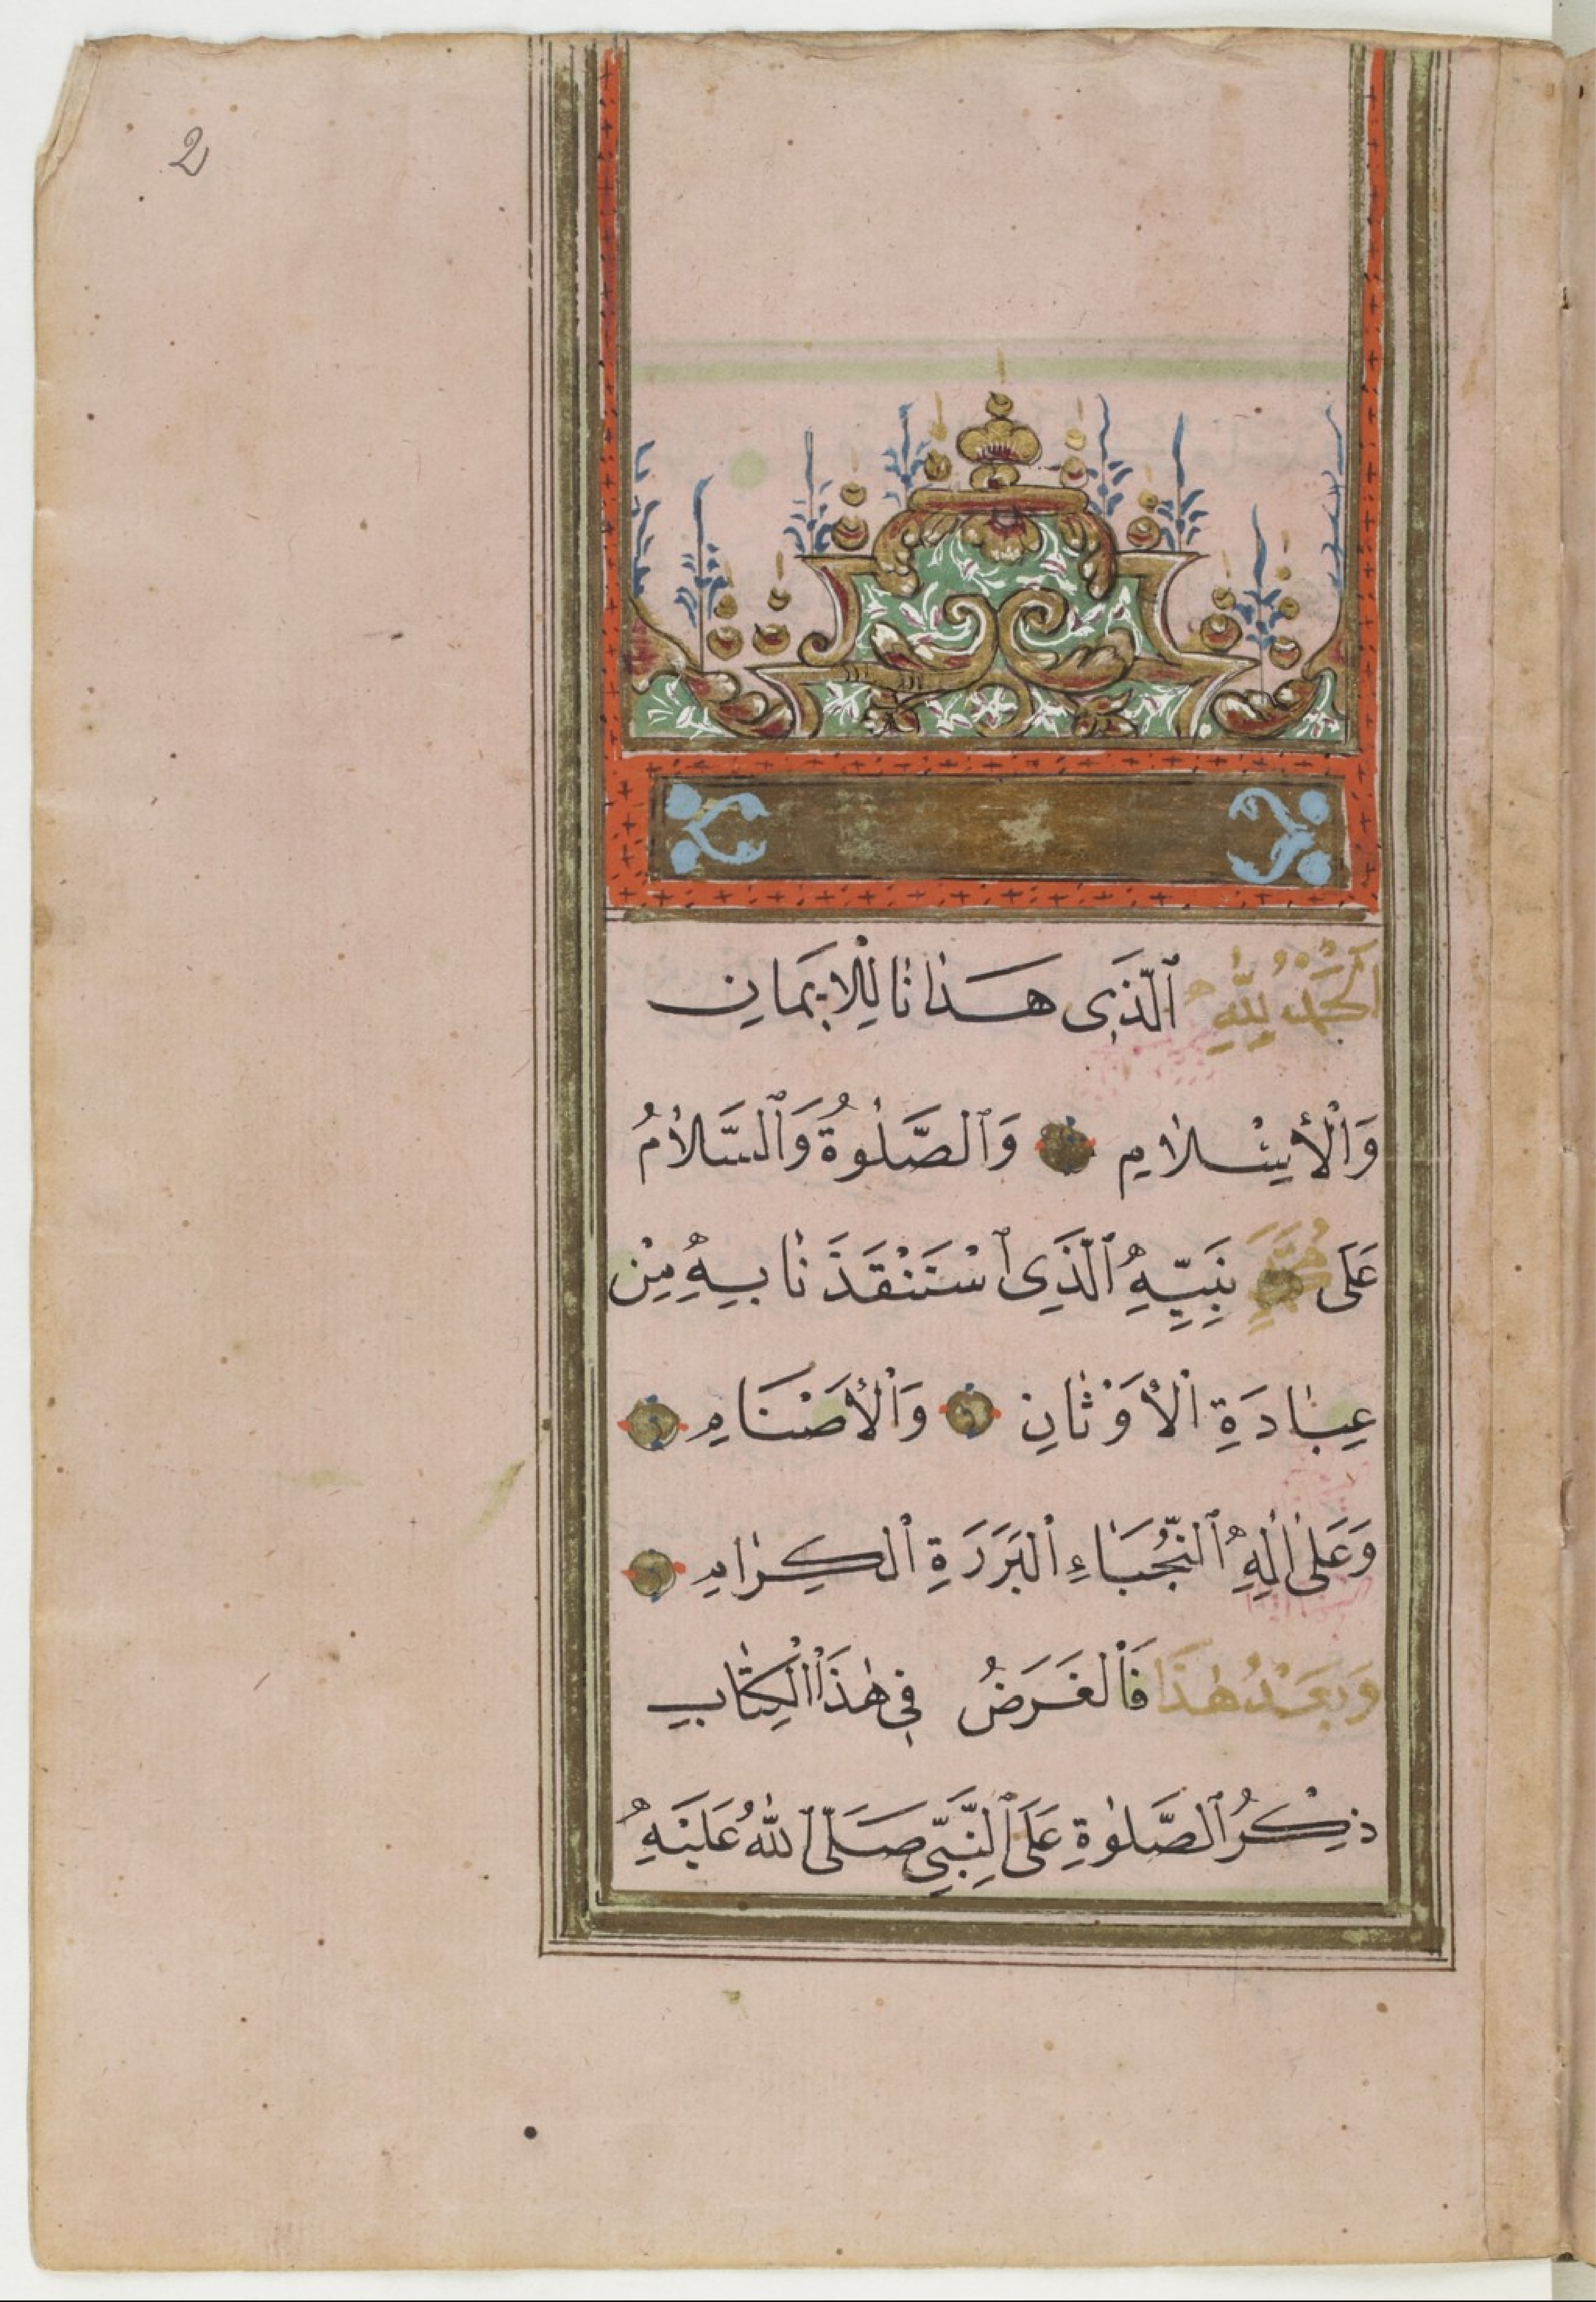 2
اَلْحَمْدُ لِلّٰهِ ٱلَّذَبٖى هَـدٰانٰا لِلْاِيمَانِ
وَالْأِسْلٰامِ وَٱلصَّلٰوةُ وَٱلسَّلٰامُ
عَلَى مُحَمَّدٍ نَبِيِّهِ ٱلَّذَى ٱسْتَنْقَذَنٰا بِهِ مِنْ
عِبٰادَةِ الْأَوْثٰانِ وَالْأَصْنَامِ
وَعَلىٰ اٰلِهِ ٱلنُّجَبَاءِ الْبَرَرَةِ الْكِرٰامِ
وَبَعْدُ هٰذَا فَالْغَرَضُ فِى هٰذَا الْكِتٰابِ
ذِكْرُ ٱلصَّلٰوةِ عَلَى ٱلنَّبِىِّ صَلَّى ٱللّٰهُ عَلَيْهِ